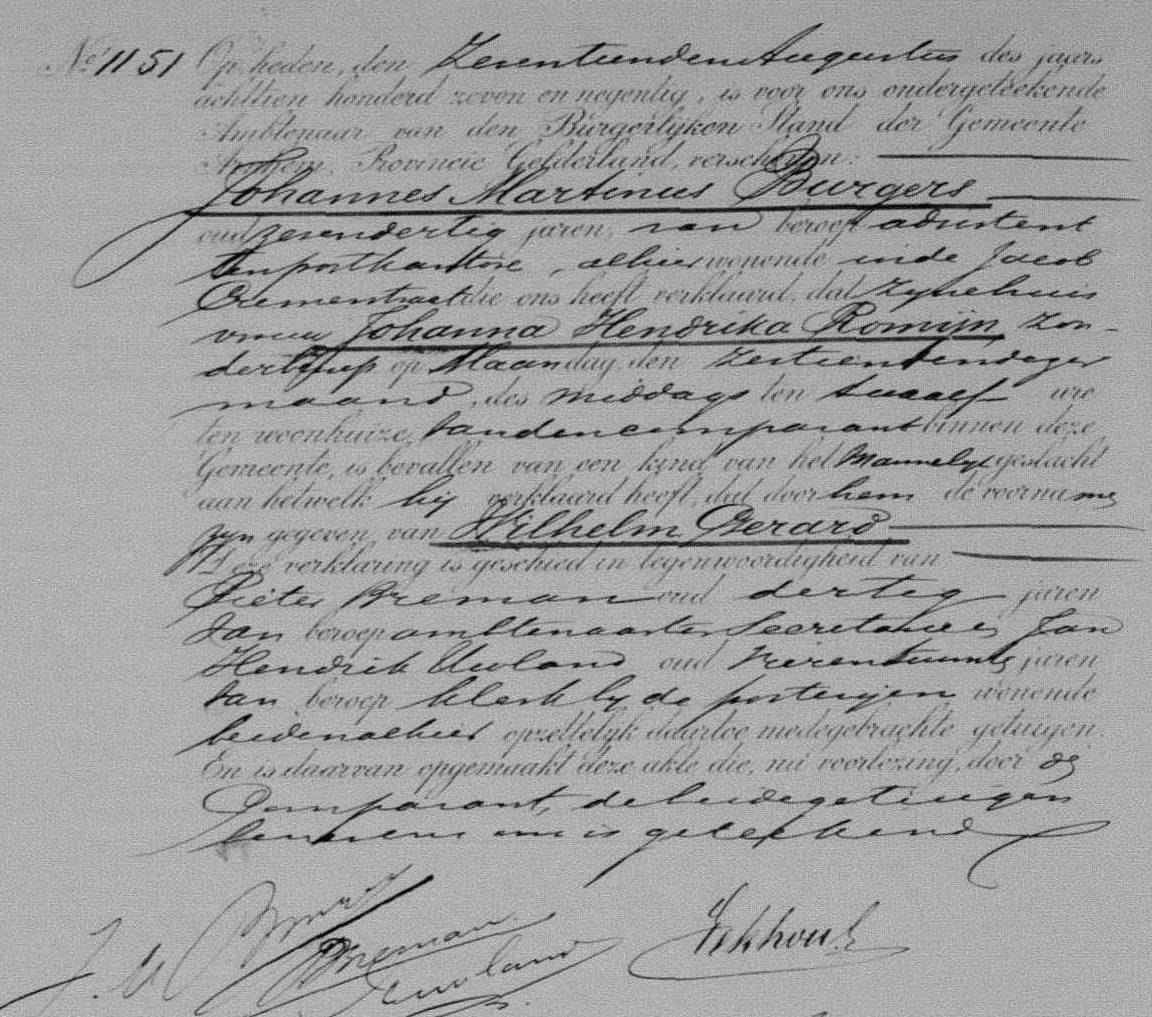 No. 1151 Op heden, den Zeventienden Augustus des jaars
achttien honderd zeven en negentig, is voor ons ondergeteekende
Ambtenaar van den Burgerlijken Stand der Gemeente
Arnhem, Provincie Gelderland, verschenen:
Johannes Martinus Burgers
oud zevendertig jaren, van beroep adsistent
ten postkantore, alhier wonende in de Jacob
Cremerstraat die ons heeft verklaard, dat zijne huis
vrouw Johanna Hendrika Romijn zon-
der beroep op Maandag, den zestienden dezer
maand, des middags ten twaalf ure
ten woonhuize, van den comparant binnen deze
Gemeente, is bevallen van een kind van het Mannelijk geslacht
aan hetwelk hij verklaard heeft, dat door hem de voorname
zijn gegeven van Wilhelm Gerard
Deze verklaring is geschied in tegenwoordigheid van
Pieter Breman oud dertig jaren
van beroep ambtenaar ter Secretarie en Jan
Hendrik Uwland oud vierentwintig jaren
van beroep klerk bij de posterijen wonende
beiden alhier opzettelijk daartoe medegebrachte getuigen.
En is daarvan opgemaakt deze akte die, na voorlezing, door de
Comparant, de beide getuigen
benevens ons is geteekend
J. M. Burgers
P Breman
Uwland
Eekhout